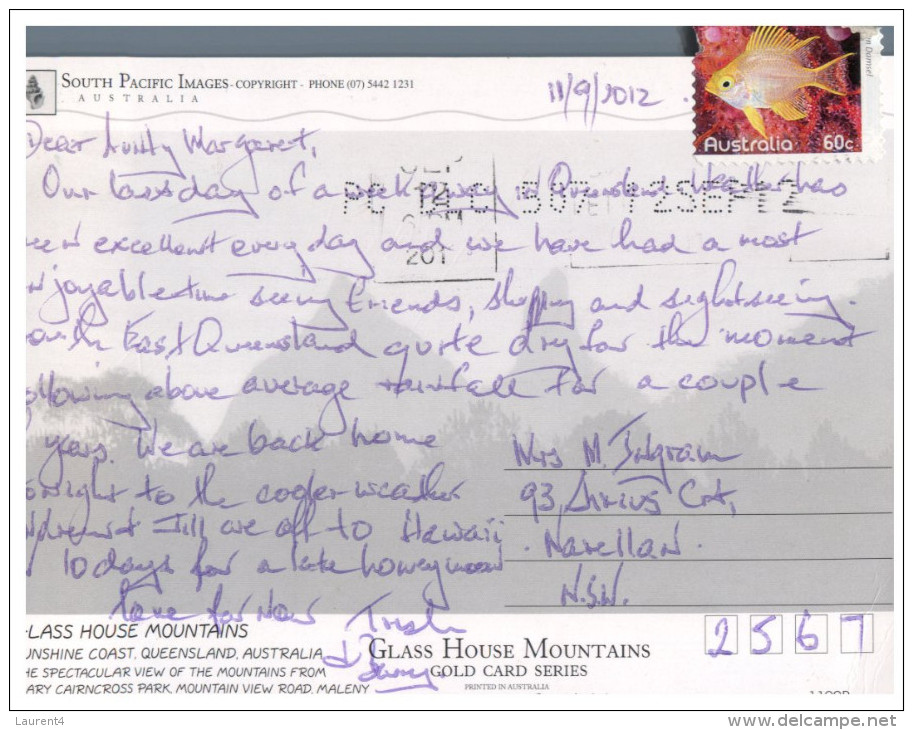 SOUTH PACIFIC IMAGES - COPYRIGHT - PHONE (07) 5442 1231
AUSTRALIA
11/9/2012
Damsel
Australia 60c
Dear Aunty Margaret,
Our last day of a week away in Queensland Weather has
een excellent every day and we have had a most
njoyable time seeing friends, shopping and sightseeing.
outh East Queensland quite dry for the moment
ollowing above average rainfall for a couple
years. We are back home
onight to the cooler weather
Jill are off to Hawaii
10 days for a late honeymoon
love for now Trish
&
Mrs M. Ingram
93, Sirius Crt,
Narellan.
N.S.W.
2567
LASS HOUSE MOUNTAINS
UNSHINE COAST, QUEENSLAND, AUSTRALIA
HE SPECTACULAR VIEW OF THE MOUNTAINS FROM
ARY CAIRNCROSS PARK, MOUNTAIN VIEW ROAD, MALENY
GLASS HOUSE MOUNTAINS
GOLD CARD SERIES
PRINTED IN AUSTRALIA
Laurent4
www.delcampe.net